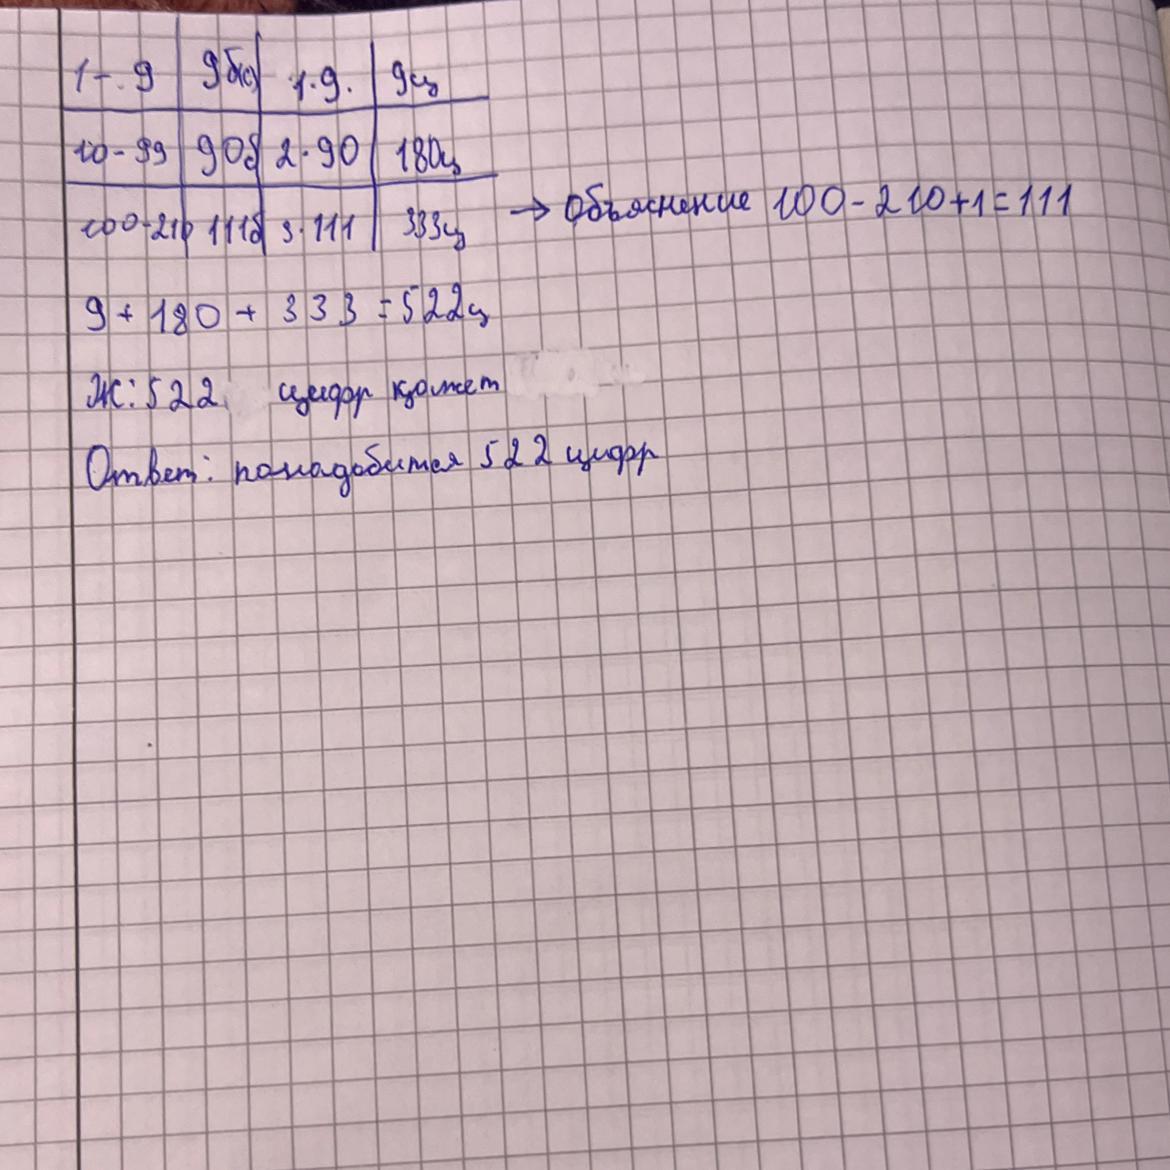 1-9 9бет 1·9. 9ц
10-99 90б 2·90 180ц
100-210 111б 3·111 333ц → Объяснение 100-210+1=111
9+180+333=522ц
Ж: 522 цифр қажет
Ответ: понадобится 522 цифр